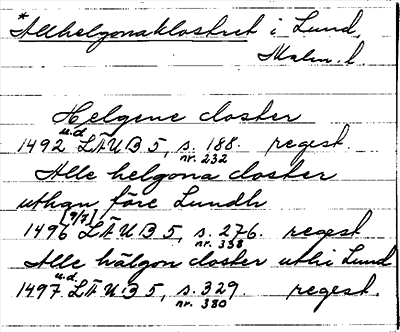 *Allhelgonaklostret i Lund,
Malm. l.
Helgene closter
1492 u.d. LÄUB 5, s. 188. regest.
nr. 232
Alle helgona closter
uthan före Lundh
1496 [9/7] LÄUB 5, s. 276. regest
nr. 338
Alle hälgon closter uthi Lund
1497 u.d. LÄUB 5, s. 329. regest.
nr. 380